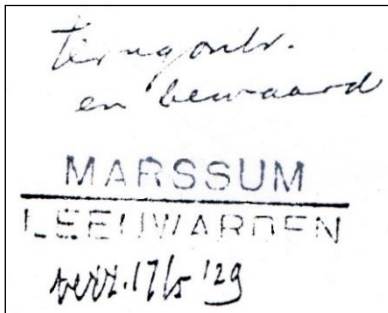 terugontv.
en bewaard
MARSSUM
LEEUWARDEN
verz. 17/5 '29